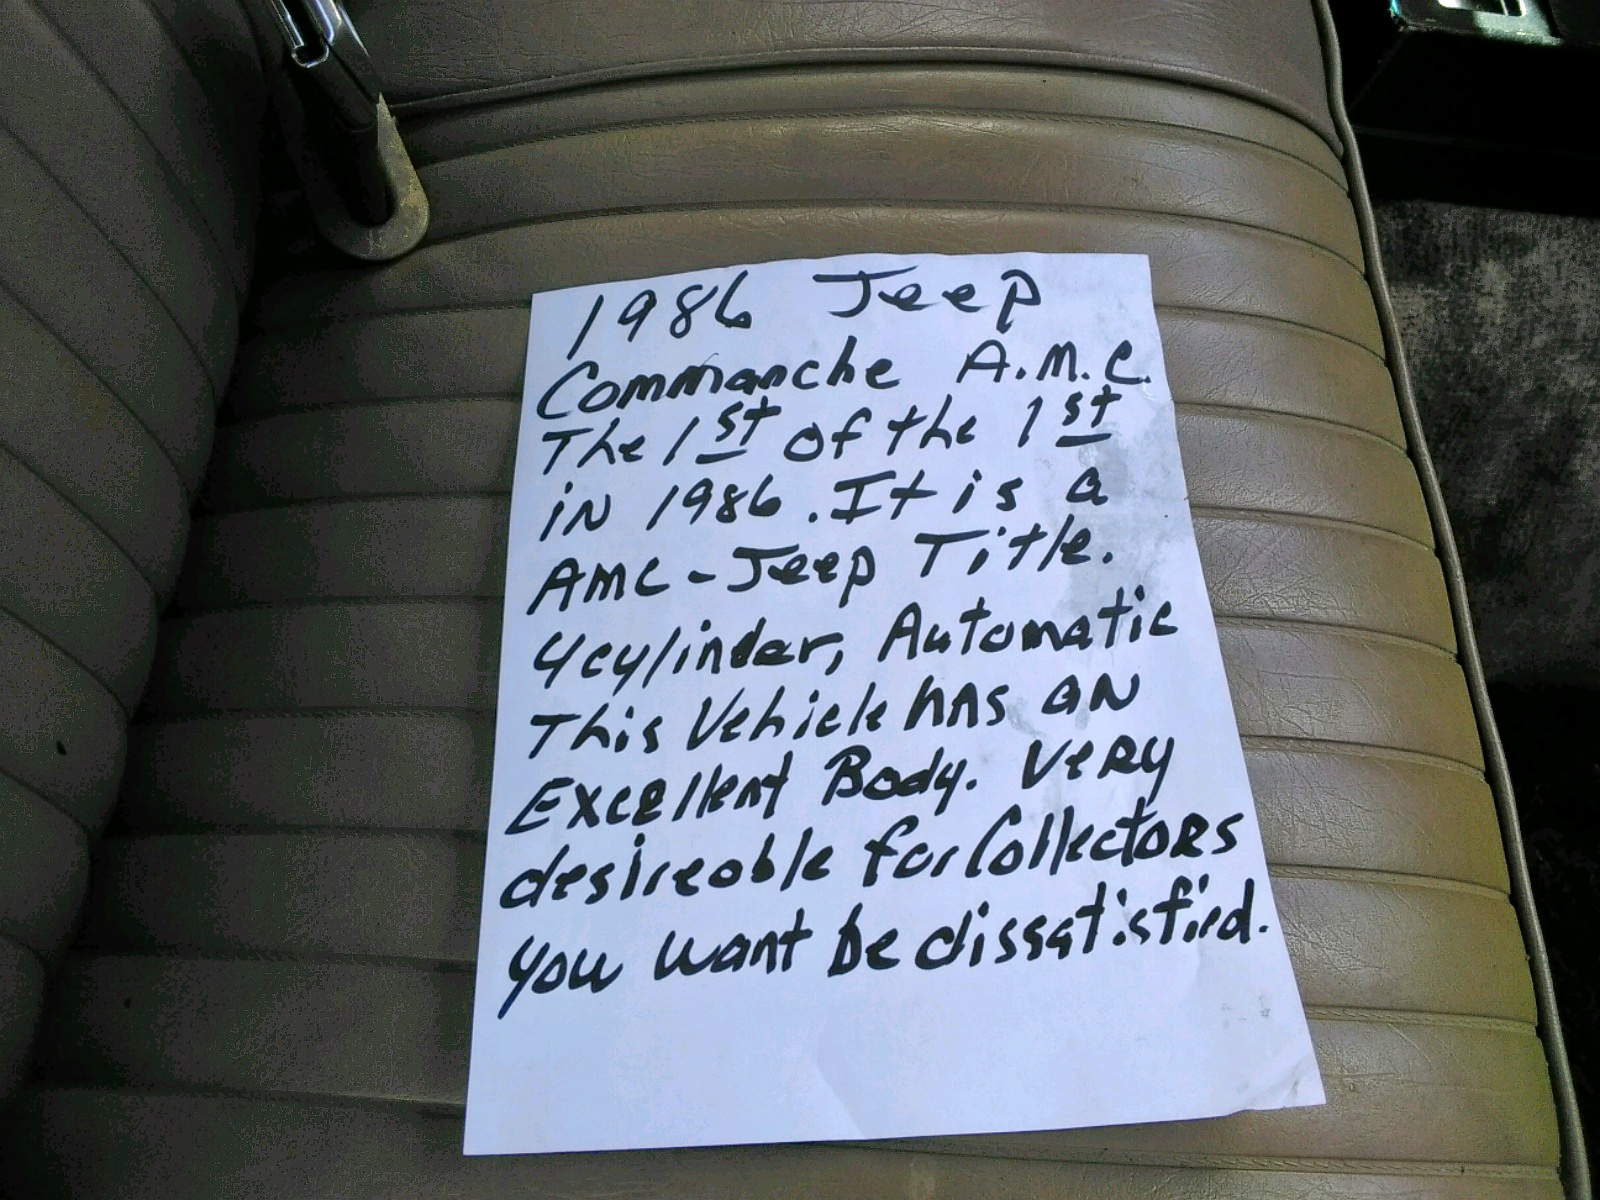 1986 Jeep
Commanche A.M.C.
The 1st of the 1st
in 1986. It is a
AMC-Jeep Title.
4cylinder, Automatic
This Vehicle has an
Excellent Body. Very
desireable for Collectors
you want be dissatisfied.